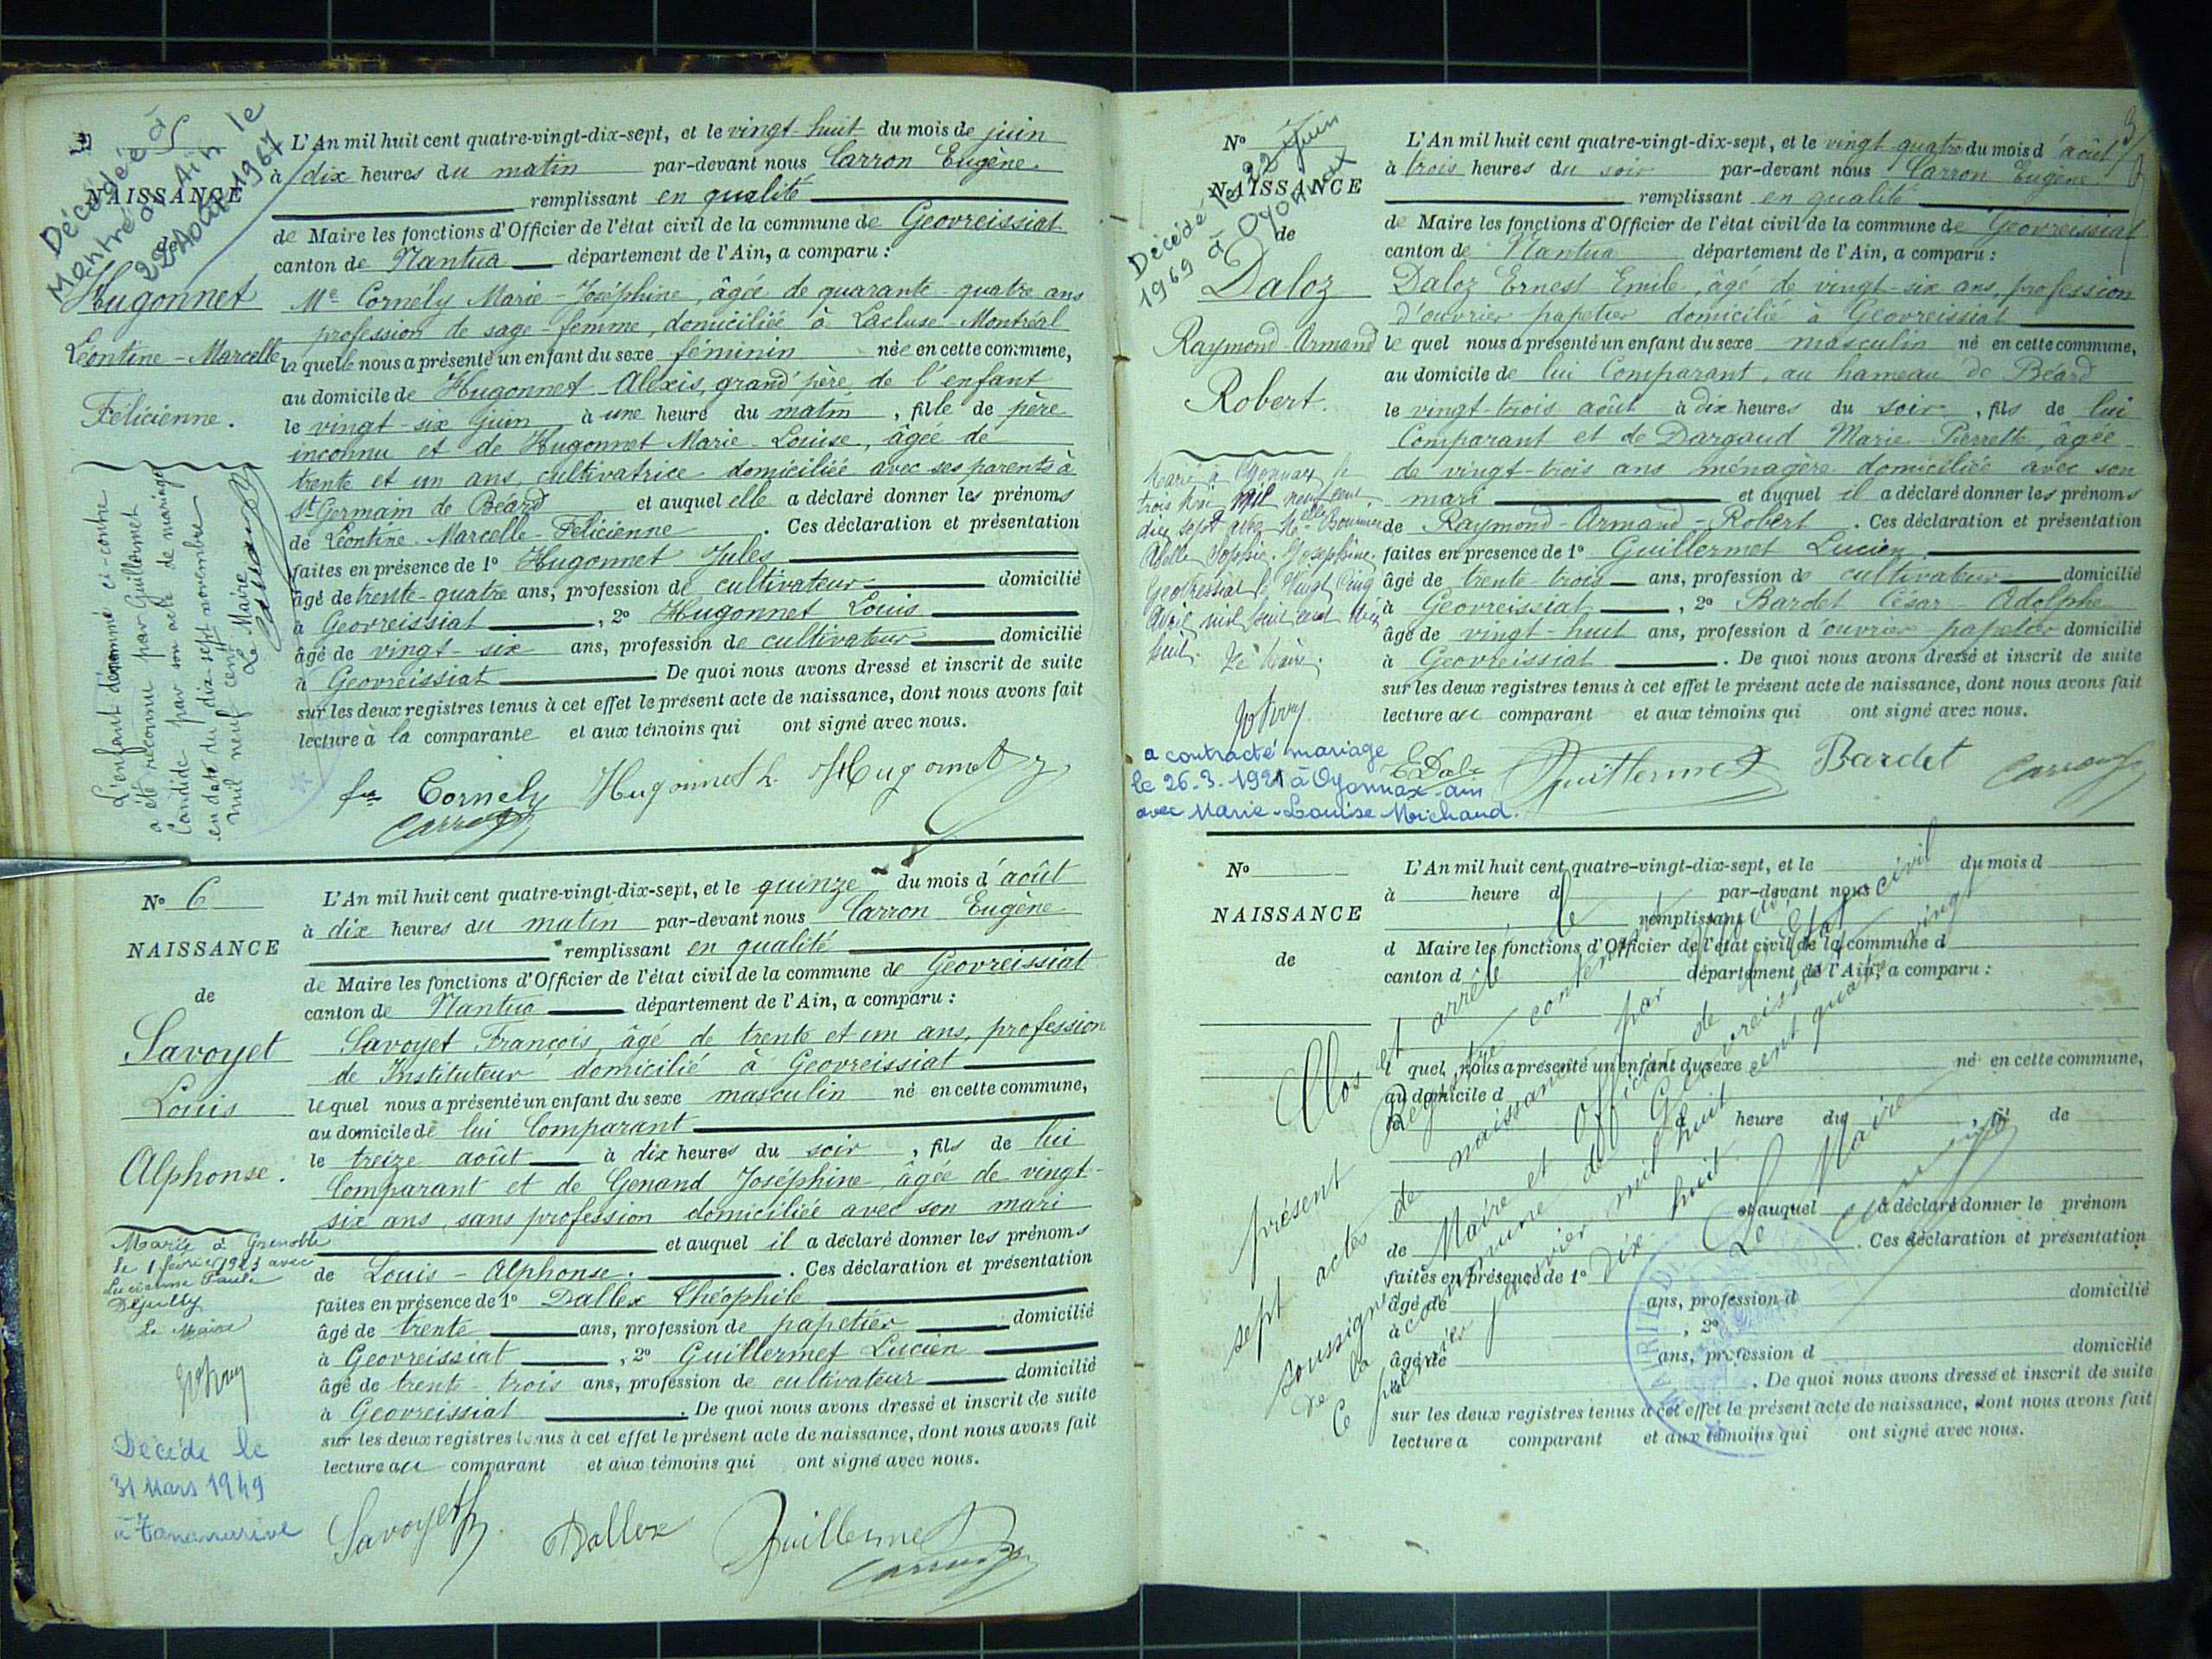 Nº 5
Décédé à
Montréal Ain le
22 Août 1967
NAISSANCE
de
Hugonnet
Léontine-Marcelle
Félicienne.
L'enfant dénommé ci-contre
a été reconnu par Guillermet
Candide par son acte de mariage
en date du dix-sept novembre
mil neuf cent
Le Maire
Carron
L'An mil huit cent quatre-vingt-dix-sept, et le vingt-huit du mois de juin
à dix heures du matin par-devant nous Carron Eugène
remplissant en qualité
de Maire les fonctions d'Officier de l'état civil de la commune de Geovreissiat
canton de Nantua département de l'Ain, a comparu :
Me Cornély Marie-Joséphine, âgée de quarante-quatre ans
profession de sage-femme, domiciliée à Lacluse-Montréal
la quelle nous a présenté un enfant du sexe féminin née en cette commune,
au domicile de Hugonnet Alexis, grand'père de l'enfant
le vingt-six juin à une heure du matin, fille de père
inconnu et de Hugonnet Marie-Louise, âgée de
trente et un ans, cultivatrice domiciliée avec ses parents à
St Germain de Béard et auquel elle a déclaré donner les prénoms
de Léontine-Marcelle-Félicienne. Ces déclaration et présentation
faites en présence de 1º Hugonnet Jules
âgé de trente-quatre ans, profession de cultivateur domicilié
à Geovreissiat, 2º Hugonnet Louis
âgé de vingt-six ans, profession de cultivateur domicilié
à Geovreissiat De quoi nous avons dressé et inscrit de suite
sur les deux registres tenus à cet effet le présent acte de naissance, dont nous avons fait
lecture à la comparante et aux témoins qui ont signé avec nous.
fe Cornely Hugonnet L. Hugonnet J
Carron
Nº 6
NAISSANCE
de
Savoyet
Louis
Alphonse.
Marié à Grenoble
le 1 février 1923 avec
Lucienne Paule
Dejully
Le Maire
Décédé le
31 Mars 1949
à Tananarive
L'An mil huit cent quatre-vingt-dix-sept, et le quinze du mois d'août
à dix heures du matin par-devant nous Carron Eugène
remplissant en qualité
de Maire les fonctions d'Officier de l'état civil de la commune de Geovreissiat
canton de Nantua département de l'Ain, a comparu :
Savoyet François, âgé de trente et un ans, profession
de Instituteur domicilié à Geovreissiat
le quel nous a présenté un enfant du sexe masculin né en cette commune,
au domicile de lui Comparant
le treize août à dix heures du soir, fils de lui
Comparant et de Genand Joséphine, âgée de vingt-
six ans, sans profession domiciliée avec son mari
et auquel il a déclaré donner les prénoms
de Louis-Alphonse. Ces déclaration et présentation
faites en présence de 1º Dallex Théophile
âgé de trente ans, profession de papetier domicilié
à Geovreissiat, 2º Guillermet Lucien
âgé de trente-trois ans, profession de cultivateur domicilié
à Geovreissiat. De quoi nous avons dressé et inscrit de suite
sur les deux registres tenus à cet effet le présent acte de naissance, dont nous avons fait
lecture au comparant et aux témoins qui ont signé avec nous.
Savoyet Dallex Guillermet
Carron
Nº 7
Décédé le 22 Juin
1969 à Oyonnax
NAISSANCE
de
Daloz
Raymond-Armand
Robert.
Marié à Oyonnax le
trois Mai mil neuf cent
dix sept avec Melle Bournier
Adelle Sophie Josephine.
Geovreissiat le Vingt Cinq
Avril mil neuf cent dix
huit. Le Maire.
a contracté mariage
le 26.3.1921 à Oyonnax-Ain
avec Marie-Louise Michaud.
L'An mil huit cent quatre-vingt-dix-sept, et le vingt quatre du mois d'août
à trois heures du soir par-devant nous Carron Eugène
remplissant en qualité
de Maire les fonctions d'Officier de l'état civil de la commune de Geovreissiat
canton de Nantua département de l'Ain, a comparu :
Daloz Ernest Emile, âgé de vingt-six ans, profession
d'ouvrier papetier domicilié à Geovreissiat
le quel nous a présenté un enfant du sexe masculin né en cette commune,
au domicile de lui Comparant, au hameau de Béard
le vingt-trois août à dix heures du soir, fils de lui
Comparant et de Dargaud Marie-Pierrette, âgée
de vingt-trois ans ménagère domiciliée avec son
mari et auquel il a déclaré donner les prénoms
de Raymond-Armand-Robert. Ces déclaration et présentation
faites en présence de 1º Guillermet Lucien
âgé de trente-trois ans, profession de cultivateur domicilié
à Geovreissiat, 2º Bardet César Adolphe
âgé de vingt-huit ans, profession d'ouvrier papetier domicilié
à Geovreissiat. De quoi nous avons dressé et inscrit de suite
sur les deux registres tenus à cet effet le présent acte de naissance, dont nous avons fait
lecture au comparant et aux témoins qui ont signé avec nous.
E Daloz Guillermet Bardet Carron
Nº
NAISSANCE
de
L'An mil huit cent quatre-vingt-dix-sept, et le du mois d
à heure d par-devant nous
remplissant
d Maire les fonctions d'Officier de l'état civil de la commune d
canton d département de l'Ain, a comparu :
l quel nous a présenté un enfant du sexe né en cette commune,
au domicile d
le à heure du , fil de
et auquel a déclaré donner le prénom
de . Ces déclaration et présentation
faites en présence de 1º
âgé de ans, profession d domicilié
à , 2º
âgé de ans, profession d domicilié
à . De quoi nous avons dressé et inscrit de suite
sur les deux registres tenus à cet effet le présent acte de naissance, dont nous avons fait
lecture a comparant et aux témoins qui ont signé avec nous.
Clos et arrêté le
présent Registre contenant
sept actes de naissance par
soussigné Maire et Officier de l'Etat civil
de la commune de Geovreissiat
Ce premier janvier mil huit cent quatre vingt
dix huit.
Le Maire
Carron
MAIRIE DE